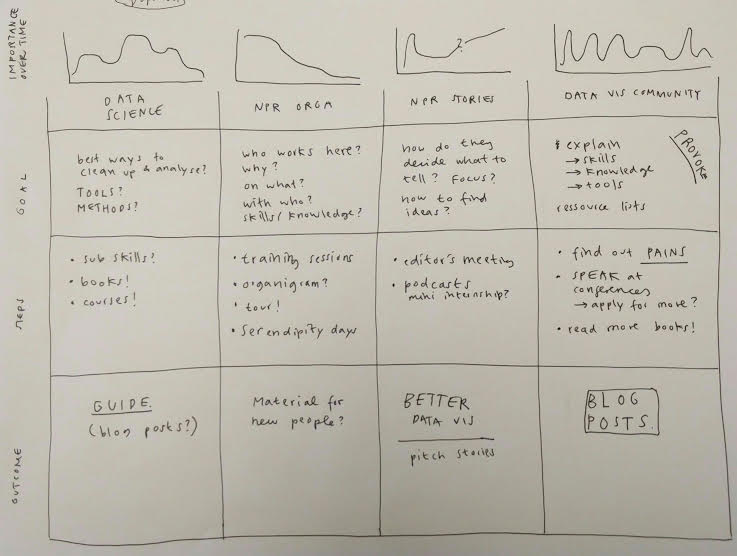 IMPORTANCE
OVER TIME
?
DATA
SCIENCE
NPR ORGA
NPR STORIES
DATA VIS COMMUNITY
GOAL
best ways to
clean up & analyse?
TOOLS?
METHODS?
who works here?
why?
on what?
with who?
skills/knowledge?
how do they
decide what to
tell? FOCUS?
how to find
ideas?
explain
→ skills
→ knowledge
→ tools
ressource lists
PROVOKE
STEPS
• sub skills?
• books!
• courses!
• training sessions
• organigram?
• tour!
• serendipity days
• editor's meeting
• podcasts
mini internship?
• find out PAINS
• SPEAK at
conferences
→ apply for more?
• read more books!
OUTCOME
GUIDE
(blog posts?)
Material for
new people?
BETTER
DATA VIS
pitch stories
BLOG
POSTS.